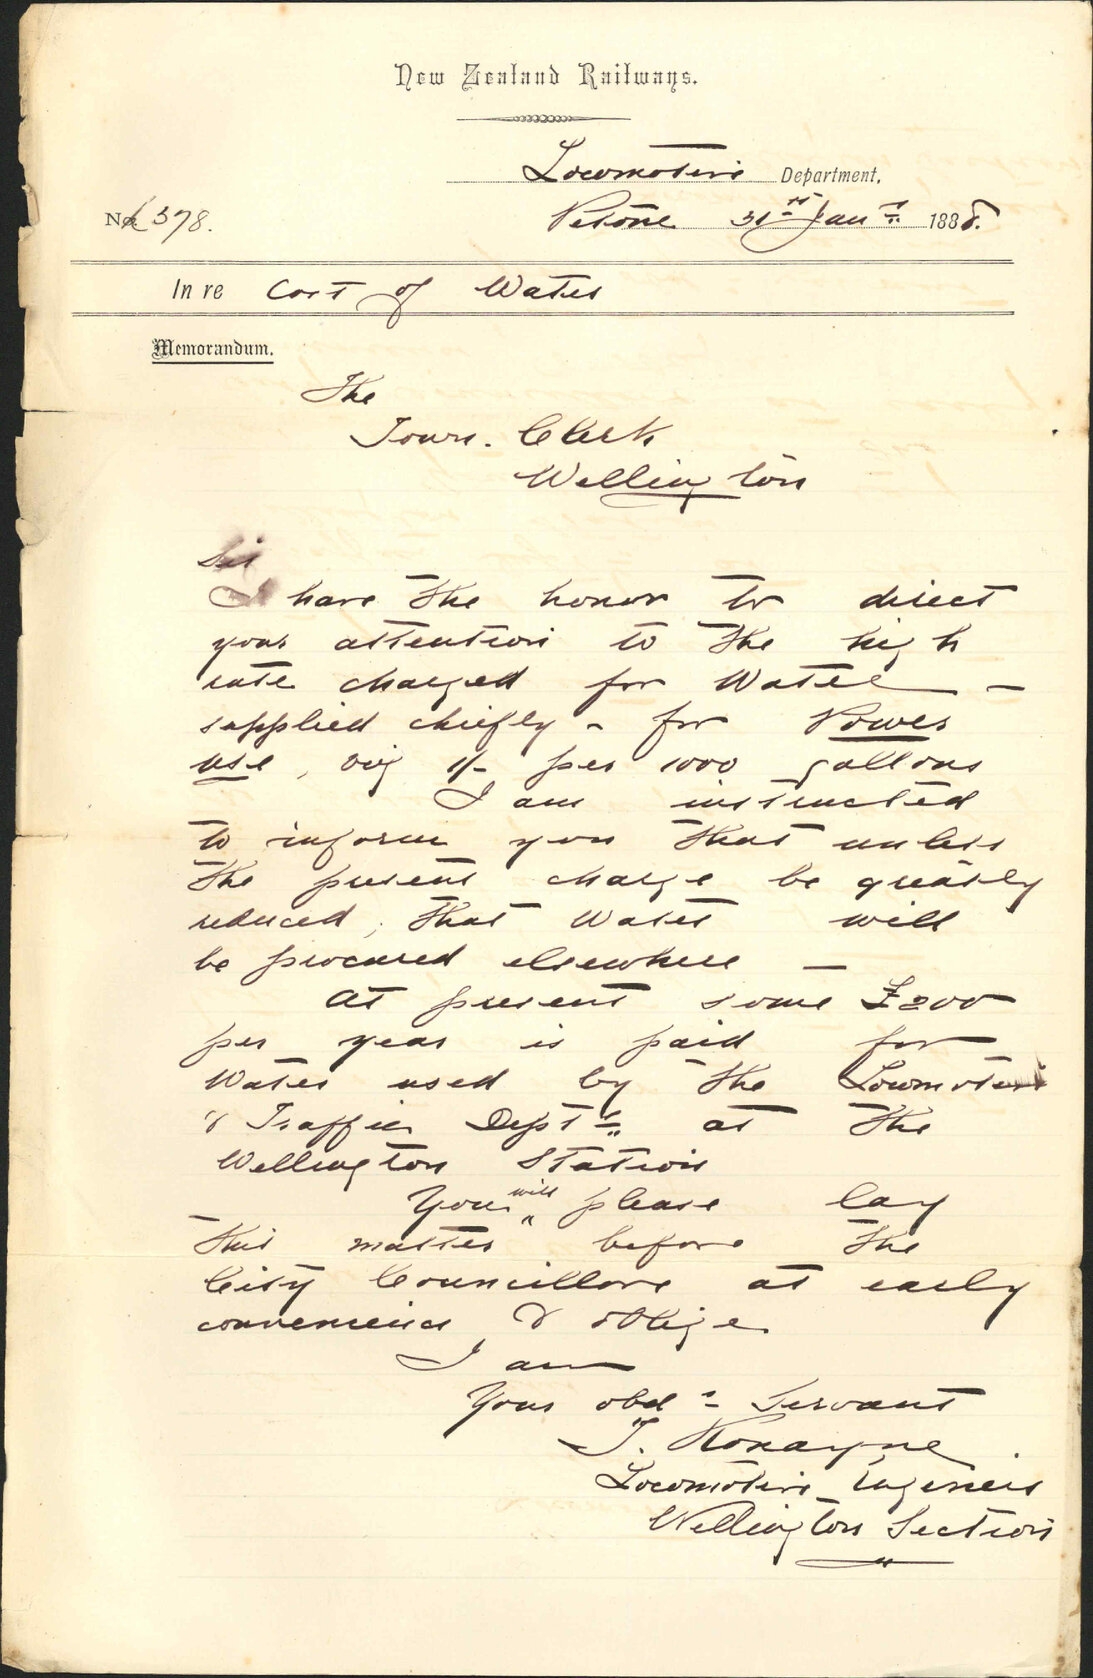 New Zealand Railways.
Locomotive Department,
No. 378. Petone 31st Jany 1888.
In re Cost of Water
Memorandum.
The
Town Clerk
Wellington
Sir
I have the honor to direct
your attention to the high
rate charged for Water –
supplied chiefly – for Power
use, viz 1/- per 1000 gallons
I am instructed
to inform you that unless
the present charge be greatly
reduced, that Water will
be procured elsewhere –
At present some £200
per year is paid for
Water used by the Locomotive
& Traffic Depts at the
Wellington Station
You will please lay
this matter before the
City Councillors at early
convenience & oblige
I am
Your obdt Servant
T. Ronayne
Locomotive Engineer
Wellington Section